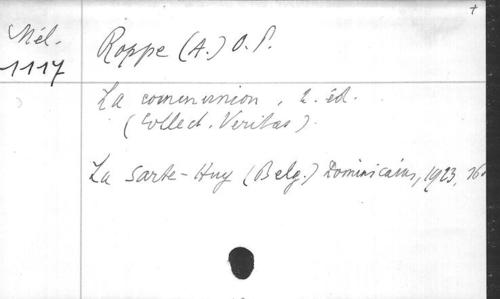 Mél.
1117
Roppe (A.) O. P.
La communion, 2. éd.
(Collect. Veritas).
La Sarte-Huy (Belg.) Dominicains, 1923, 16o